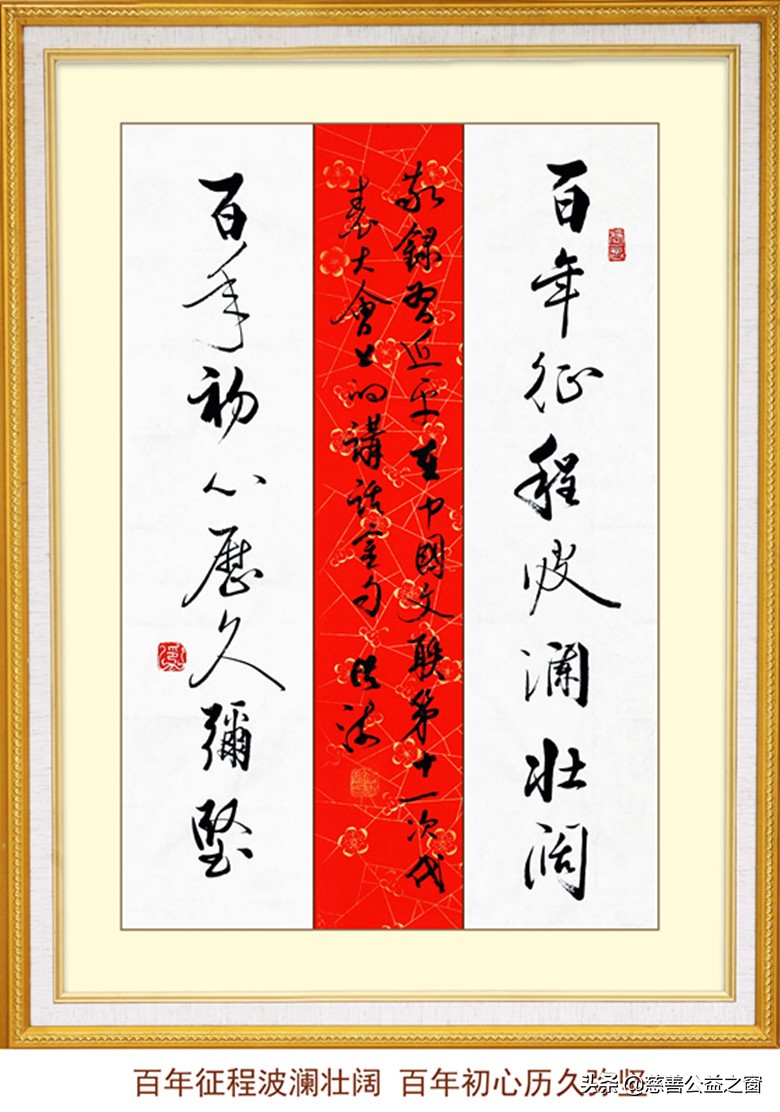 百年征程波澜壮阔
敬錄習近平在中國文联第十一次代
表大會上的講話金句
百年初心歷久彌堅
百年征程波澜壮阔 百年初心历久弥坚
头条 @慈善公益之窗